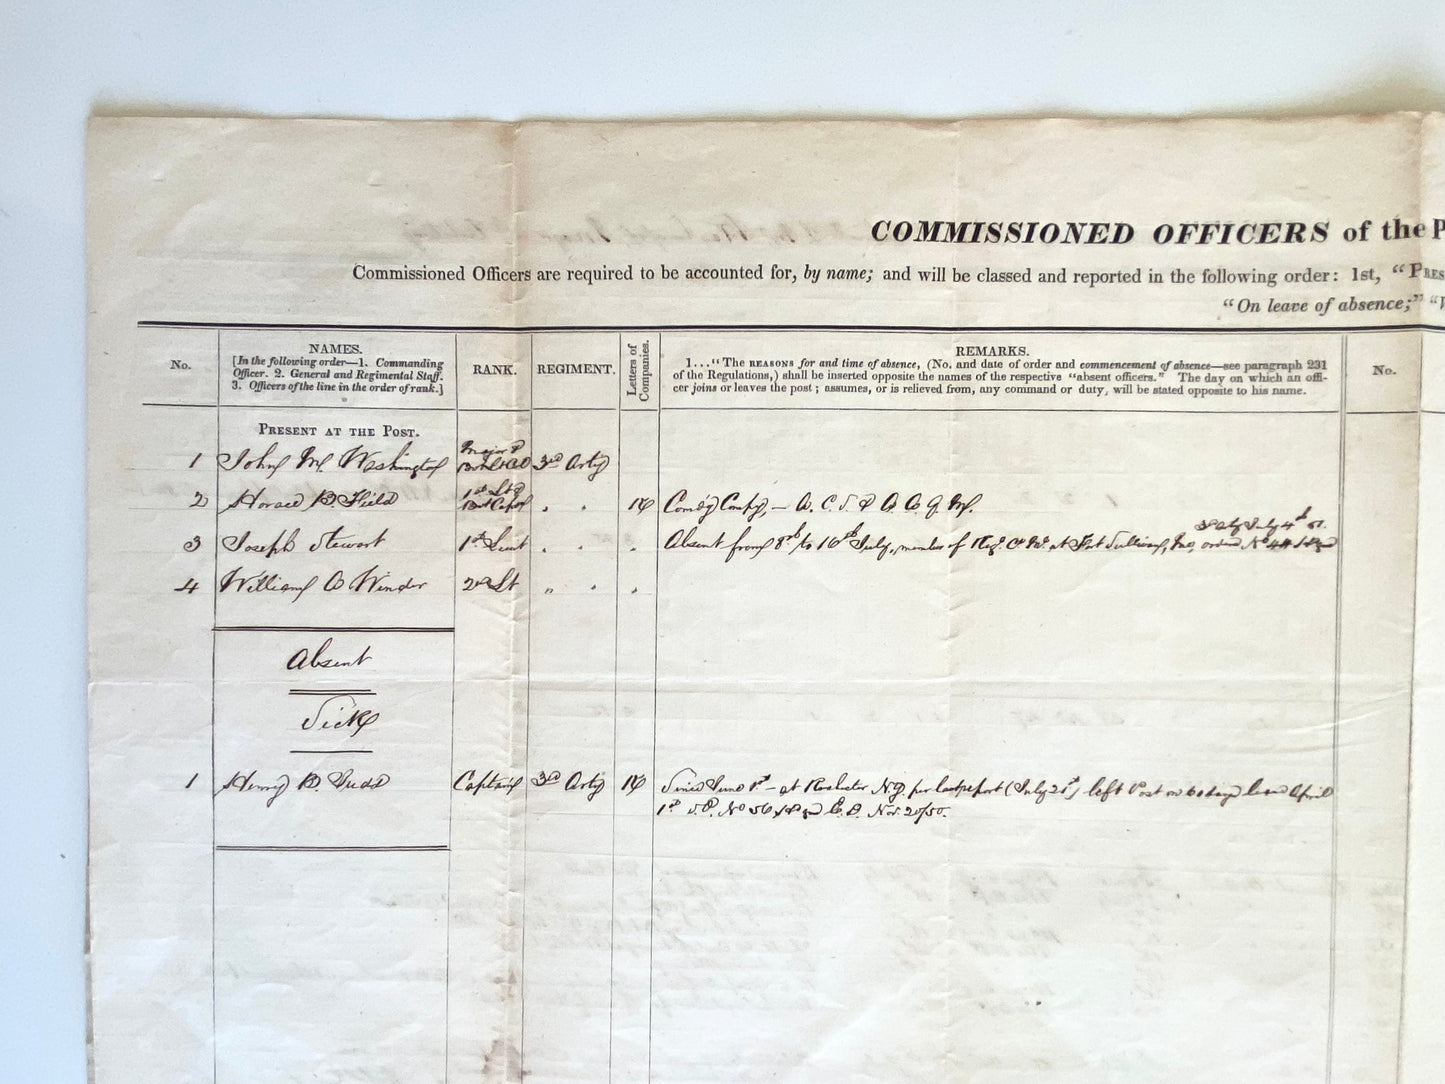 COMMISSIONED OFFICERS of the P
Commissioned Officers are required to be accounted for, by name; and will be classed and reported in the following order: 1st, "PRES
"On leave of absence;" "W
No.
NAMES.
[In the following order—1. Commanding
Officer. 2. General and Regimental Staff.
3. Officers of the line in the order of rank.]
RANK.
REGIMENT.
Letters of
Companies.
REMARKS.
1..."The REASONS for and time of absence, (No. and date of order and commencement of absence—see paragraph 231
of the Regulations,) shall be inserted opposite the names of the respective "absent officers." The day on which an offi-
cer joins or leaves the post; assumes, or is relieved from, any command or duty, will be stated opposite to his name.
No.
PRESENT AT THE POST.
1 John M. Washington Major & Bvt Lt Col 3rd Arty
2 Horace B. Field 1st Lt & Bvt Capt " " Comdg Compy, — A. C. S. & A. A. Q. M.
3 Joseph Stewart 1st Lieut " " " Absent from 8th to 16th July, member of at Fort Sullivan, Me, orders No 44 July 4th 51.
4 William A Winder 2nd Lt " " "
Absent
Sick
1 Henry B. Judd Captain 3rd Arty Since June 1st — at Rochester N.Y. per last report (July 21st) left Post on days leave April
1st S.O. No 56 E. D. Nov. 20/50.